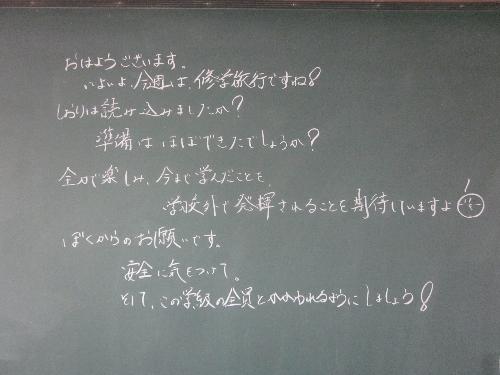 おはようございます。
いよいよ、今週は、修学旅行ですね!
しおりは読み込みましたか?
準備はほぼできたでしょうか?
全力で楽しみ、今まで学んだことを
学校外で発揮されることを期待していますよ
ぼくからのお願いです。
安全に気をつけて。
そして、この学級の全員とかかわれるようにしましょう!